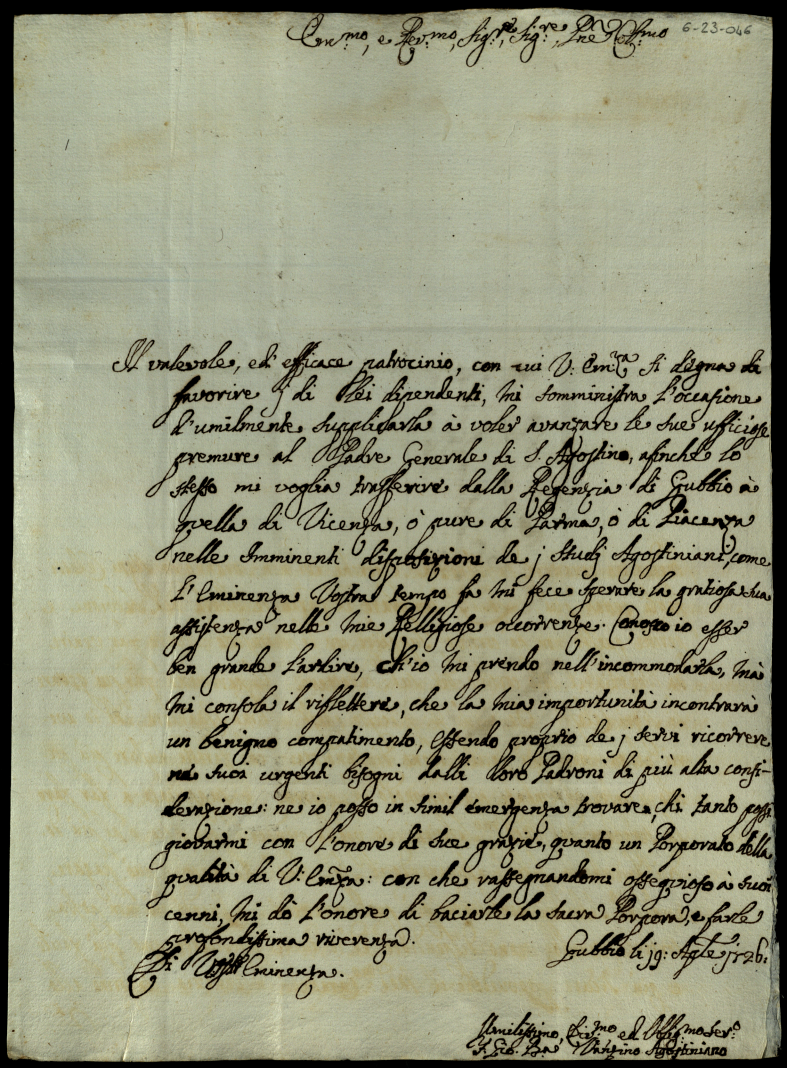 Em.mo, e Rev.mo, Sig.re, Sig.re, Pne Col.mo
6-23-046
Il valevole, ed' efficace patrocinio, con cui V: Em.za si degna di
favorire j di lei dipendenti, mi somministra l'occasione
d'umilmente supplicarla à voler avanzare le sue ufficiose
premure al Padre Generale di S. Agostino, afinche lo
stesso mi voglia trasferire dalla Regenzia di Gubbio à
quella di Vicenza, ò pure di Parma, ò di Piacenza
nelle Imminenti disposizioni de j Studj Agostiniani, come
l'Eminenza Vostra tempo fa mi fece sperare la gratiosa sua
assistenza nelle mie Relligiose occorrenze. Conosco io esser
ben grande l'ardire, ch'io mi prendo nell'incommodarla, mà
mi consola il riflettere, che la mia importunità incontrarà
un benigno compatimento, essendo proprio de j servi ricorrere
ne suoi urgenti bisogni dalli loro Padroni di più alta consi-
derazione: ne io posso in simil emergenza trovare, chi tanto possi
giovarmi con l'onore di sue grazie, quanto un Porporato della
qualità di V: Em.za: con che rassegnandomi ossequioso à suoi
cenni, mi dò l'onore di baciarle la sacra Porpora, e farle
profondissima riverenza.
Gubbio li 19: Agte 1726:
Di Vostra Eminenza.
Umilissimo, Div.mo ed Obblig.mo Ser.o
F. Gio. Ba Agostiniano